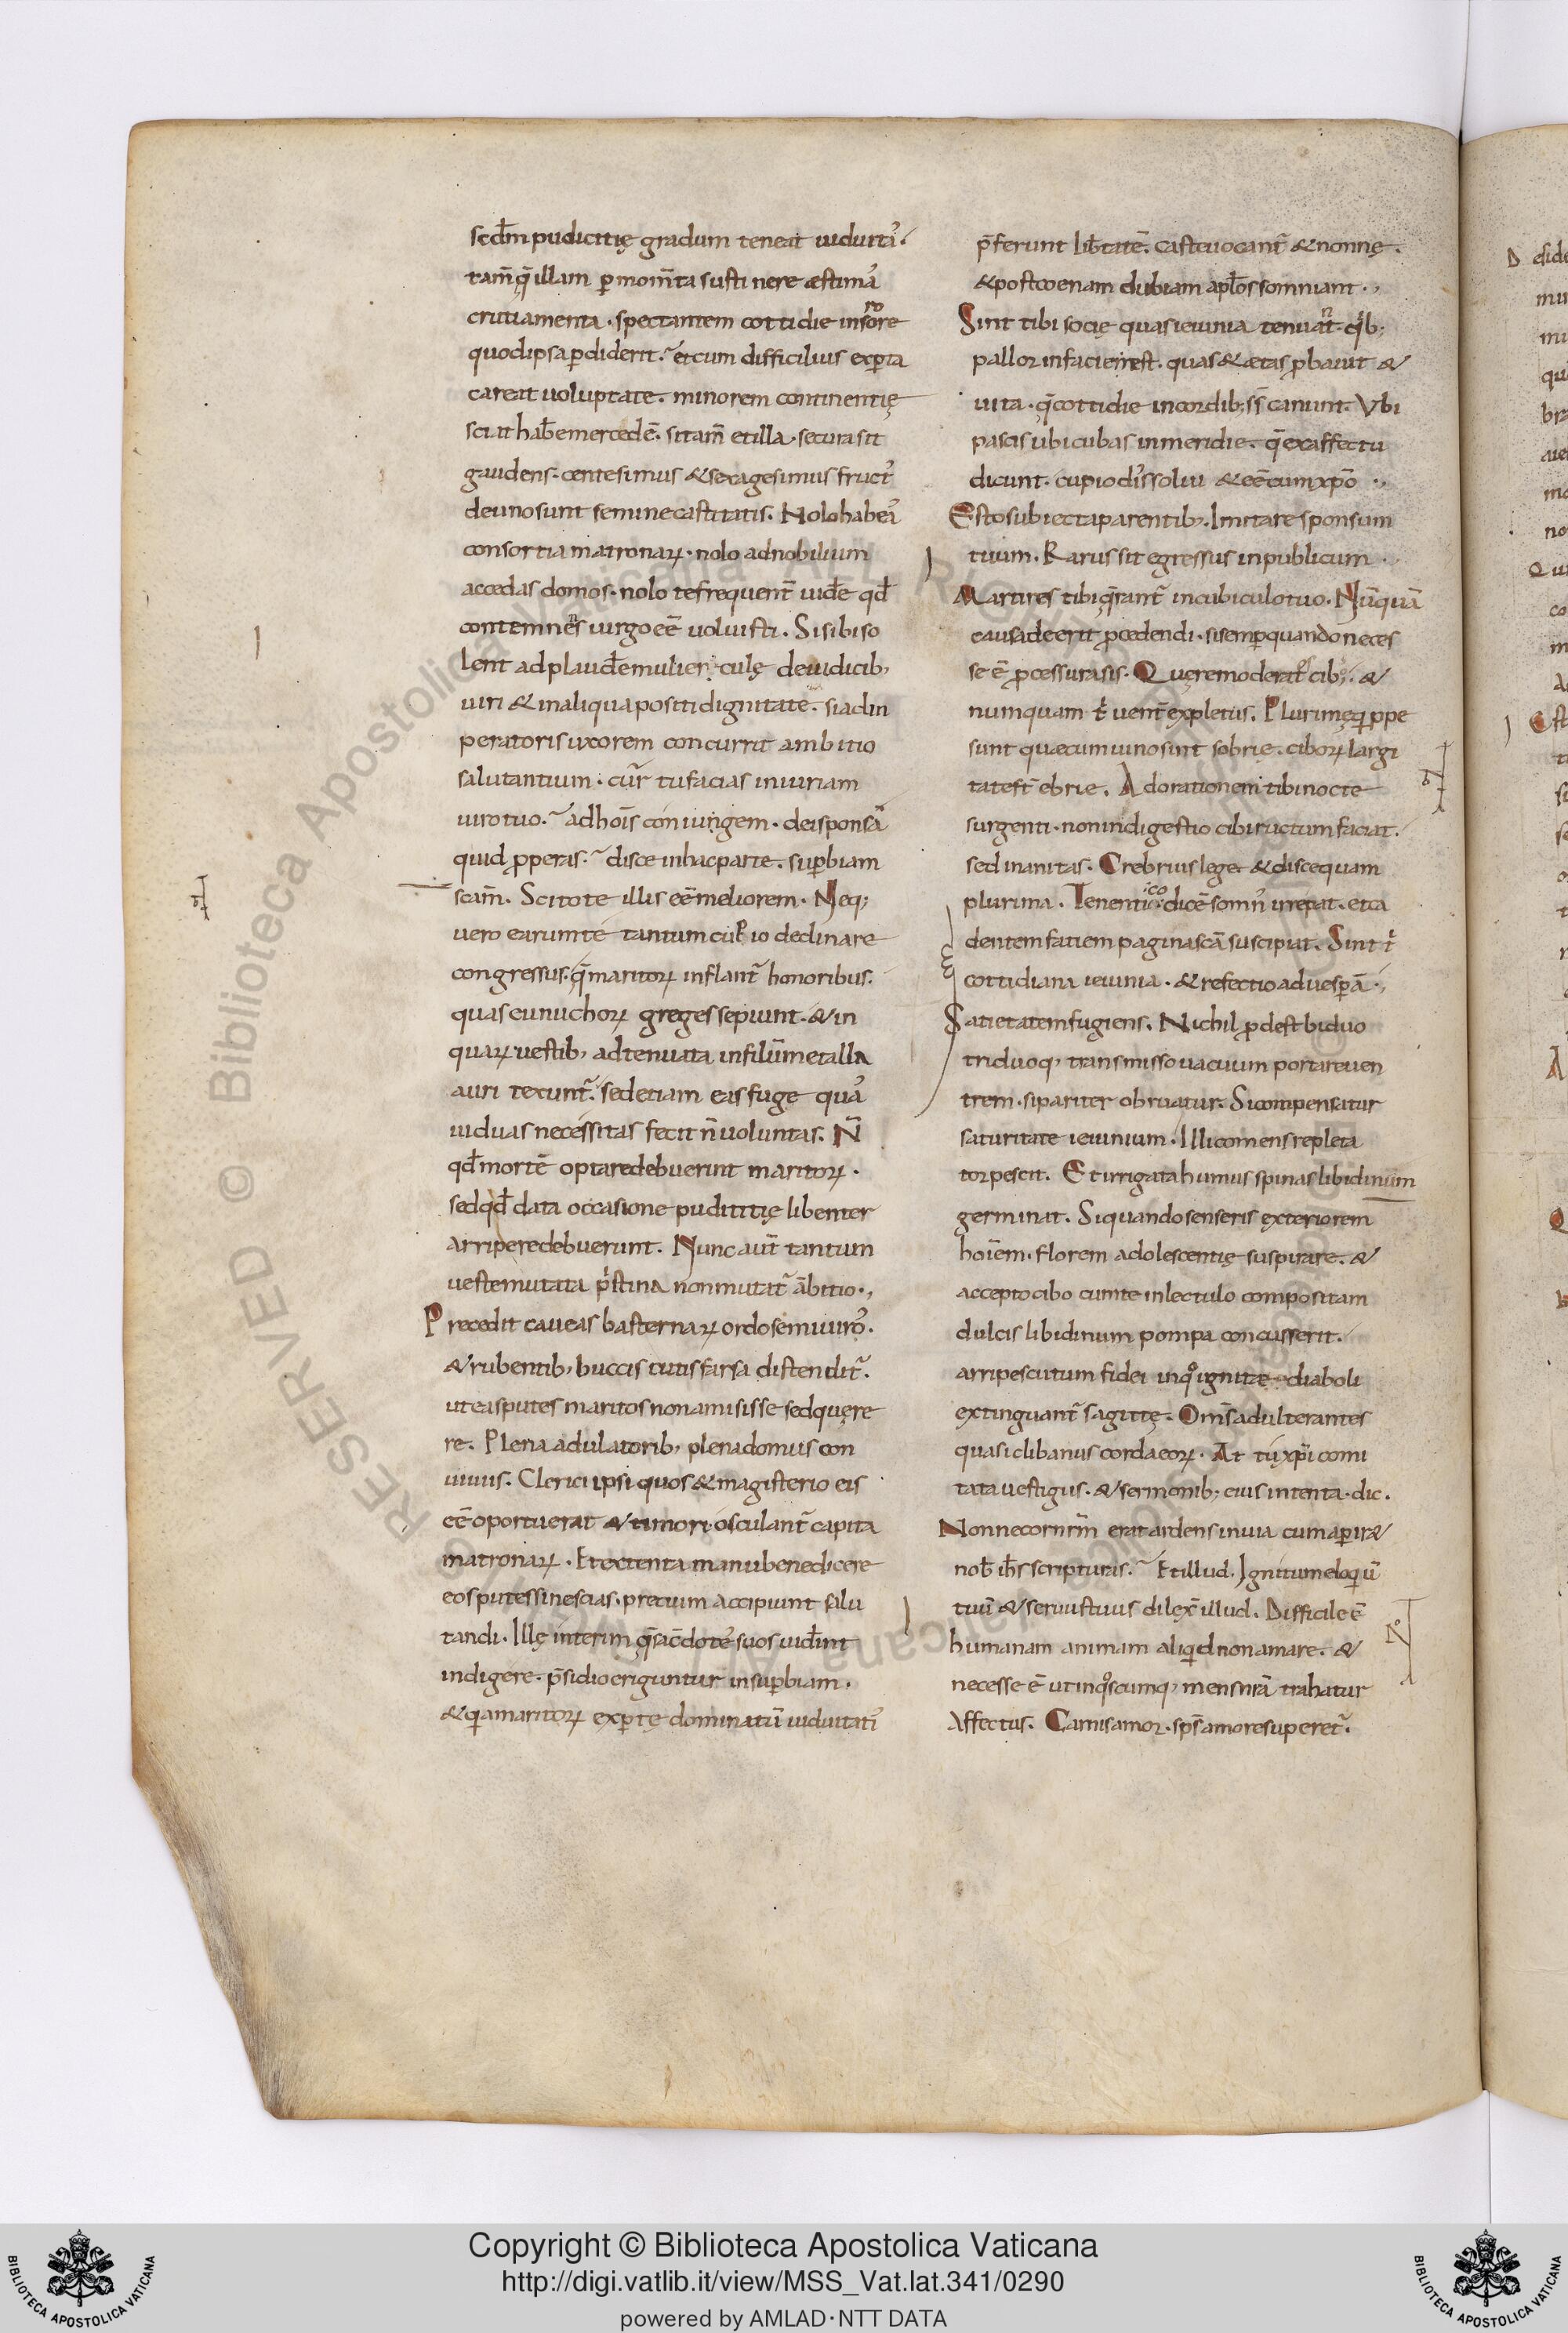 scd̄m pudicitię gradum teneat uiduitaˀ·
tam̄ q̄ illam ꝑ mom̄ta sustinere æstimaˀ
cruciamenta · spectantem cottidie in sorore
quod ipsa ꝑdiderit· et cum difficilius exꝑta
careat uoluptate. minorem continentię
sciat hab̄e mercedē. sit tam̄ et illa · secura sit
gaudens· centesimus & sexagesimus fructꝰ
de uno sunt semine castitatis. Nolo habeaˀ
consortia matronaꝝ · nolo ad nobilium
accedas domos· nolo te frequent̄ uid̄e qd̄
contemnēs uirgo eē uoluisti. Si sibi so
lent adplaud̄e mulierculę de iudicib;
uiri & in aliqua positi dignitate. si ad in
peratoris uxorem concurrit ambitio
salutantium· cur̄ tu facias iniuriam
uiro tuo. ad hoīs coniungem. dei sponsā
quid ꝓperas. disce in hac parte. suꝑbiam
scam̄. Scito te illis eē meliorem. Neq;
uero earum te tantum cupio declinare
congressus. q̄ maritoꝝ inflant̄ honoribus.
quas eunuchoꝝ greges sepiunt. & in
quaꝝ uestib; adtenuata in filum̄ metalla
auri texunt̄. sed etiam eas fuge quaˀ
uiduas necessitas fecit n̄ uoluntas. N̄
qd̄ mortē optare debuerint maritoꝝ.
sed qd̄ data occasione pudititię libenter
arripere debuerunt. Nunc aut̄ tantum
ueste mutata p̄stina non mutat̄ ābitio.,
Precedit caueas basternaꝝ ordo semiuiroˀ.
& rubentib; buccis cutis farsa distendit̄.
ut eas putes maritos non amisisse sed quęre
re. Plena adulatorib; plena domus con
uiuiis. Clerici ipsi quos & magisterio eis
eē oportuerat & timori· osculant̄ capita
matronaꝝ. Et extenta manu benedicere
eos putes si nescias· precium accipiunt salu
tandi. Illę interim q̄ sac̄doteˀ suos uid̄int
indigere. p̄sidio eriguntur in suꝑbiam.
& qa maritoꝝ exꝑtę dominatū uiduitatiˀ
p̄ferunt lib̄tatē. castę uocant̄ & nonnę.
& post coenam dubiam apl̄os somniant.,
Sint tibi socię quas ieiunia tenuant· qib;
pallor in facie inest. quas & ætas ꝓbauit &
uita· q̄ cottidie in cordib; s̄s canunt. Vbi
pascis ubi cubas in meridie. q̄ ex affectu
dicunt. cupio dissolui & eē cum xpō.,
Esto subiecta parentib;. Imitare sponsum
tuum. Rarus sit egressus in publicum.
Martires tibi q̄rant̄ in cubiculo tuo. Nūquā
causa deerit ꝓcedendi· si semꝑ quando neces
se ē ꝓcessura sis. Quęre moderatꝰ cib; &
numquam t̄ uent̄ expletus. Plurimę qippe
sunt quæ cum uino sint sobrię. ciboꝝ largi
tate st̄ ebrię. Ad orationem tibi nocte
surgenti· non indigestio cibi ructum faciat.
sed inanitas. Crebrius lege & disce quam
plurima. Tenenti codicē somnꝰ irrepat. et ca
dentem fatiem pagina scā suscipiat. Sint t̄
cottidiana ieiunia. & refectio ad uesꝑā.,
Satietatem fugiens. Nichil ꝓdest biduo
triduoq; transmisso uacuum portare uen
trem· si pariter obruatur. Si compensatur
saturitate ieiunium. Illico mens repleta
torpescit. Et irrigata humus spinas libidinum
germinat. Si quando senseris exteriorem
hoīem. florem adolescentię suspirare. &
accepto cibo cum te in lectulo compositam
dulcis libidinum pompa concusserit.
arripe scutum fidei in qͦ ignitæ diaboli
extinguant̄ sagittę. Om̄s adulterantes
quasi clibanus corda eoꝝ. At tu xp̄i comi
tata uestigiis. & sermonib; eius intenta· dic.
Nonne cor nr̄m erat ardens in uia cum aꝑir&
nob̄ ih̄s scripturas. Et illud. Ignitum eloqiū
tuū & seruus tuus dilex̄ illud. Difficile ē
humanam animam aliqid non amare. &
necesse ē ut in qͦscumq; mens nr̄ā trahatur
affectus. Carnis amor. sps̄ amore superet̄.
Copyright © Biblioteca Apostolica Vaticana
http://digi.vatlib.it/view/MSS_Vat.lat.341/0290
powered by AMLAD·NTT DATA